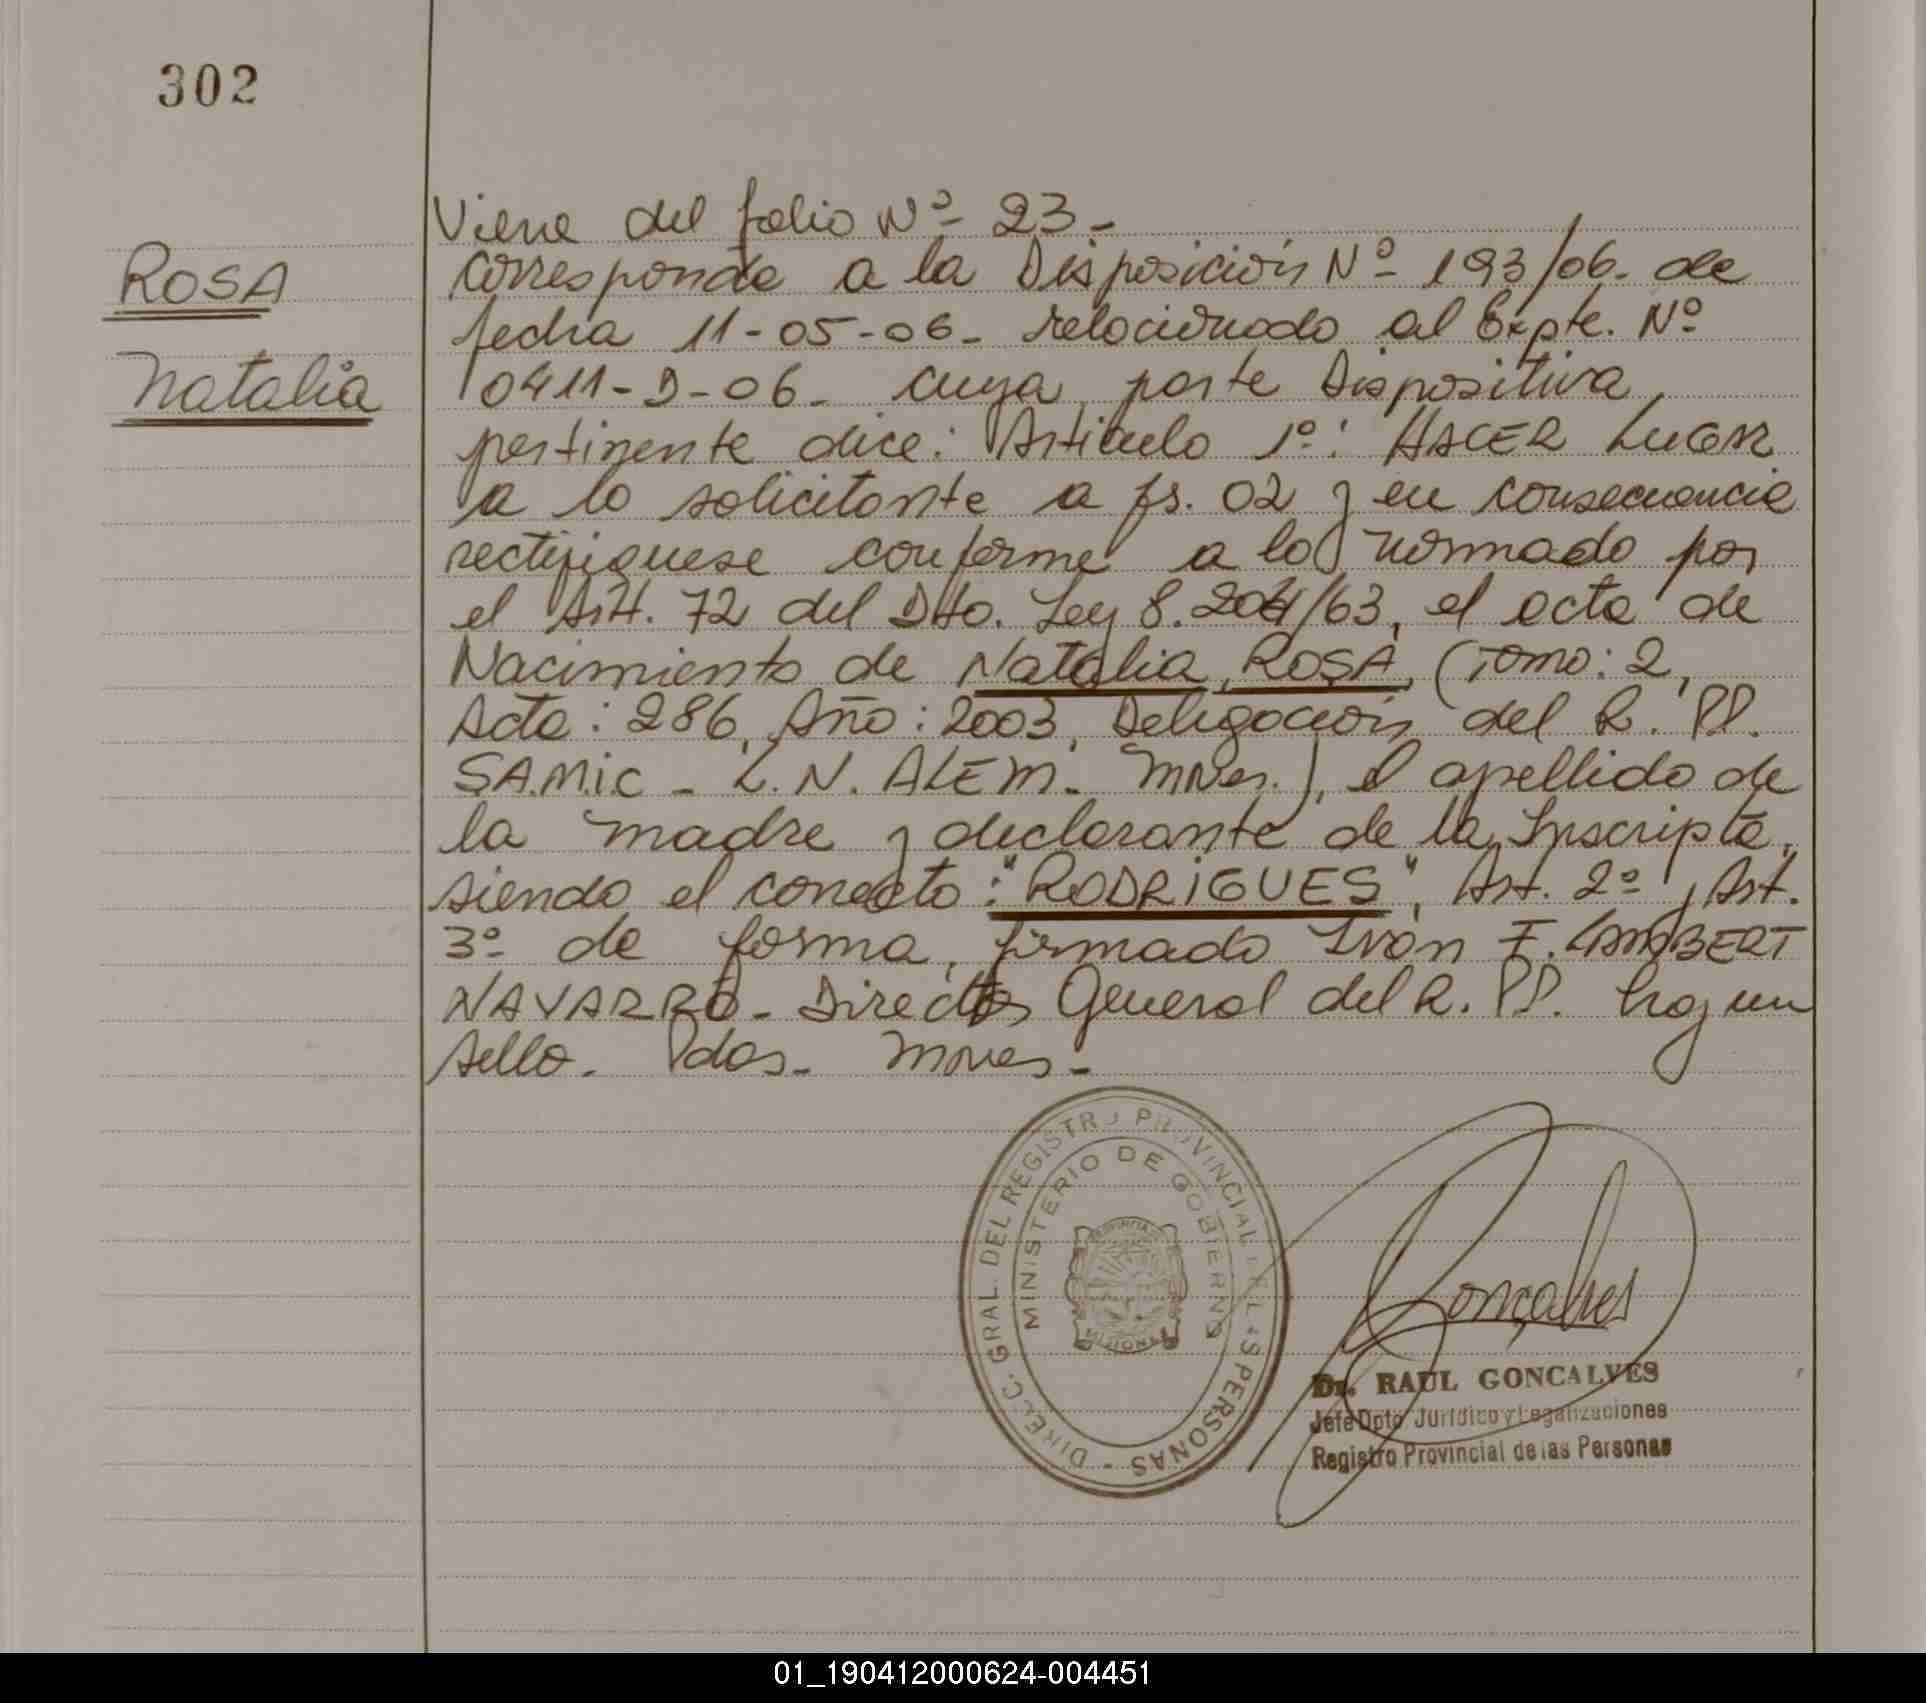 302
ROSA
Natalia
Viene del folio Nº 23-
corresponde a la Disposición Nº 193/06- de
fecha 11-05-06- relacionado al Expte. Nº
0411-D-06- cuya parte Dispositiva
pertinente dice: Artículo 1º: HACER LUGAR
a lo solicitante a fs. 02 y en consecuencia
rectifiquese conforme a lo normado por
el Art. 72 del Dto. Ley 8.204/63, el acta de
Nacimiento de Natalia ROSA, (Tomo: 2,
Acta: 286, Año: 2003, Delegación del R. PP.
SAMIC - L.N. ALEM - Mnes.), el apellido de
la madre y declarante de la Inscripta,
siendo el correcto: "RODRIGUES", Art. 2º y Art.
3º de forma, firmado Ivan F. LAMBERT
NAVARRO - Director General del R. PP. hay un
sello - Pdas - Mnes -
DIRECC. GRAL. DEL REGISTRO PROVINCIAL DE LAS PERSONAS -
MINISTERIO DE GOBIERNO
PROVINCIA
MISIONES
Gonçalves
Dr. RAUL GONCALVES
Jefe Dpto. Jurídico y Legalizaciones
Registro Provincial de las Personas
01_190412000624-004451